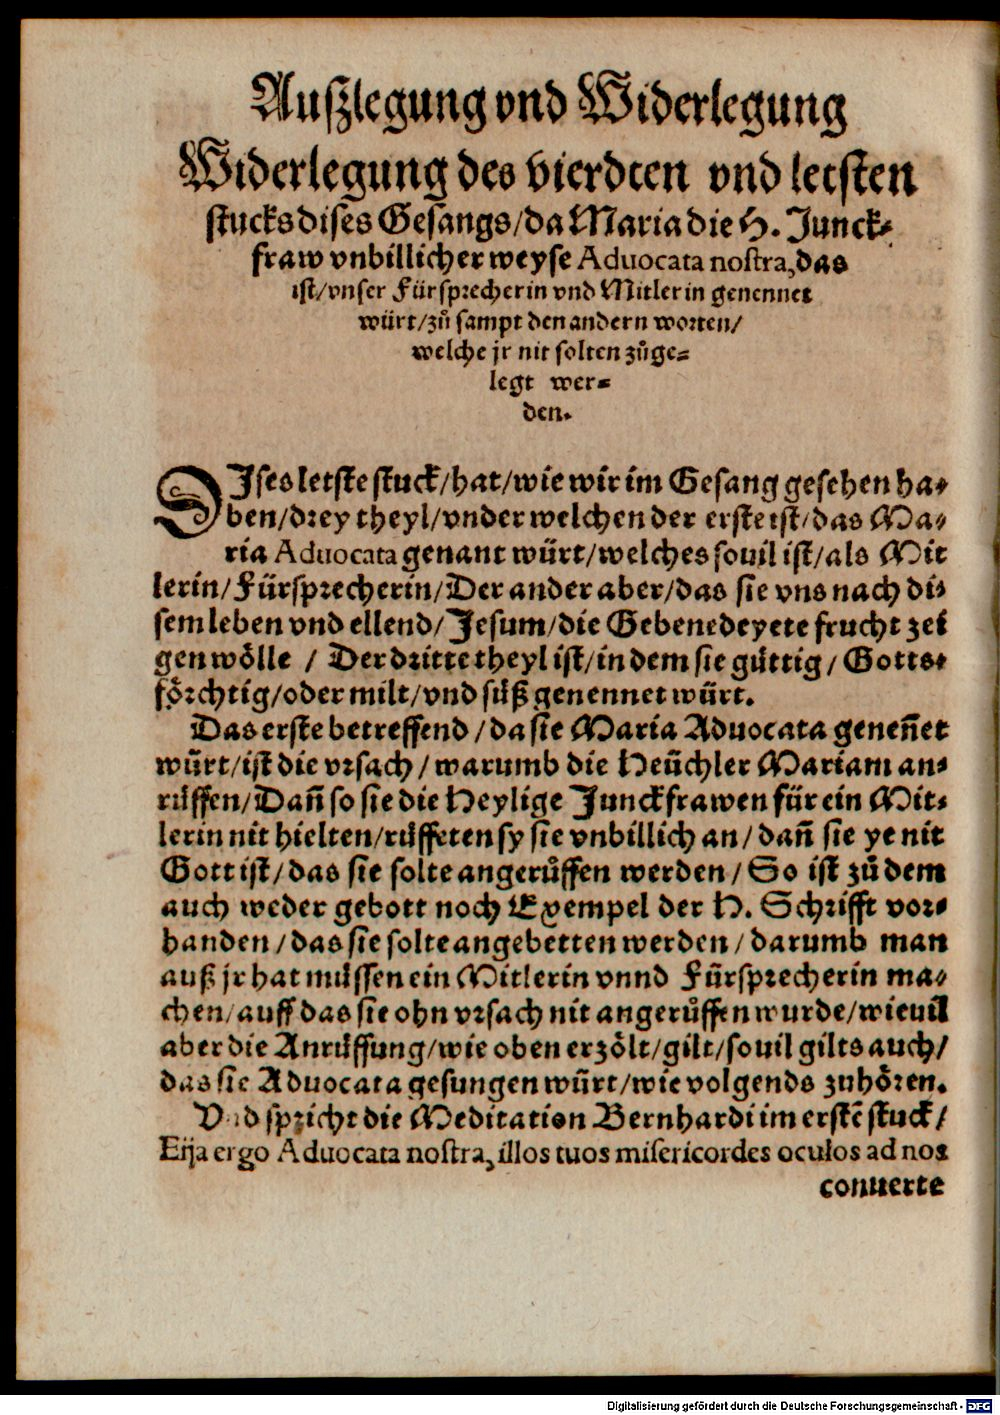 Außlegung vnd Widerlegung
Widerlegung des vierdten vnd letsten
stucks dises Gesangs/da Maria die H. Junck⸗
fraw vnbillicher weyse Aduocata nostra, das
ist/vnser Fürsprecherin vnd Mitlerin genennet
würt/zů sampt den andern worten/
welche jr nit solten zůge⸗
legt wer⸗
den.
DIses letste stuck/hat/wie wir im Gesang gesehen ha⸗
ben/drey theyl/vnder welchen der erste ist/das Ma⸗
ria Aduocata genant würt/welches souil ist/als Mit
lerin/Fürsprecherin/Der ander aber/das sie vns nach di⸗
sem leben vnd ellend/Jesum/die Gebenedeyete frucht zei
gen wölle / Der dritte theyl ist/in dem sie güttig/Gotts⸗
förchtig/oder milt/vnd süß genennet würt.
Das erste betreffend/da sie Maria Aduocata geneñet
würt/ist die vrsach/warumb die Heüchler Mariam an⸗
rüffen/Dañ so sie die Heylige Junckfrawen für ein Mit⸗
lerin nit hielten/rüffeten sy sie vnbillich an/dañ sie ye nit
Gott ist/das sie solte angerůffen werden/So ist zů dem
auch weder gebott noch Exempel der H. Schrifft vor⸗
handen/das sie solte angebetten werden/darumb man
auß jr hat müssen ein Mitlerin vnnd Fürsprecherin ma⸗
chen/auff das sie ohn vrsach nit angerůffen wurde/wieuil
aber die Anrüffung/wie oben erzölt/gilt/souil gilts auch/
das sie Aduocata gesungen würt/wie volgends zuhören.
Vnd spricht die Meditation Bernhardi im erstē stuck/
Eija ergo Aduocata nostra, illos tuos misericordes oculos ad nos
conuerte
Digitalisierung gefördert durch die Deutsche Forschungsgemeinschaft - DFG